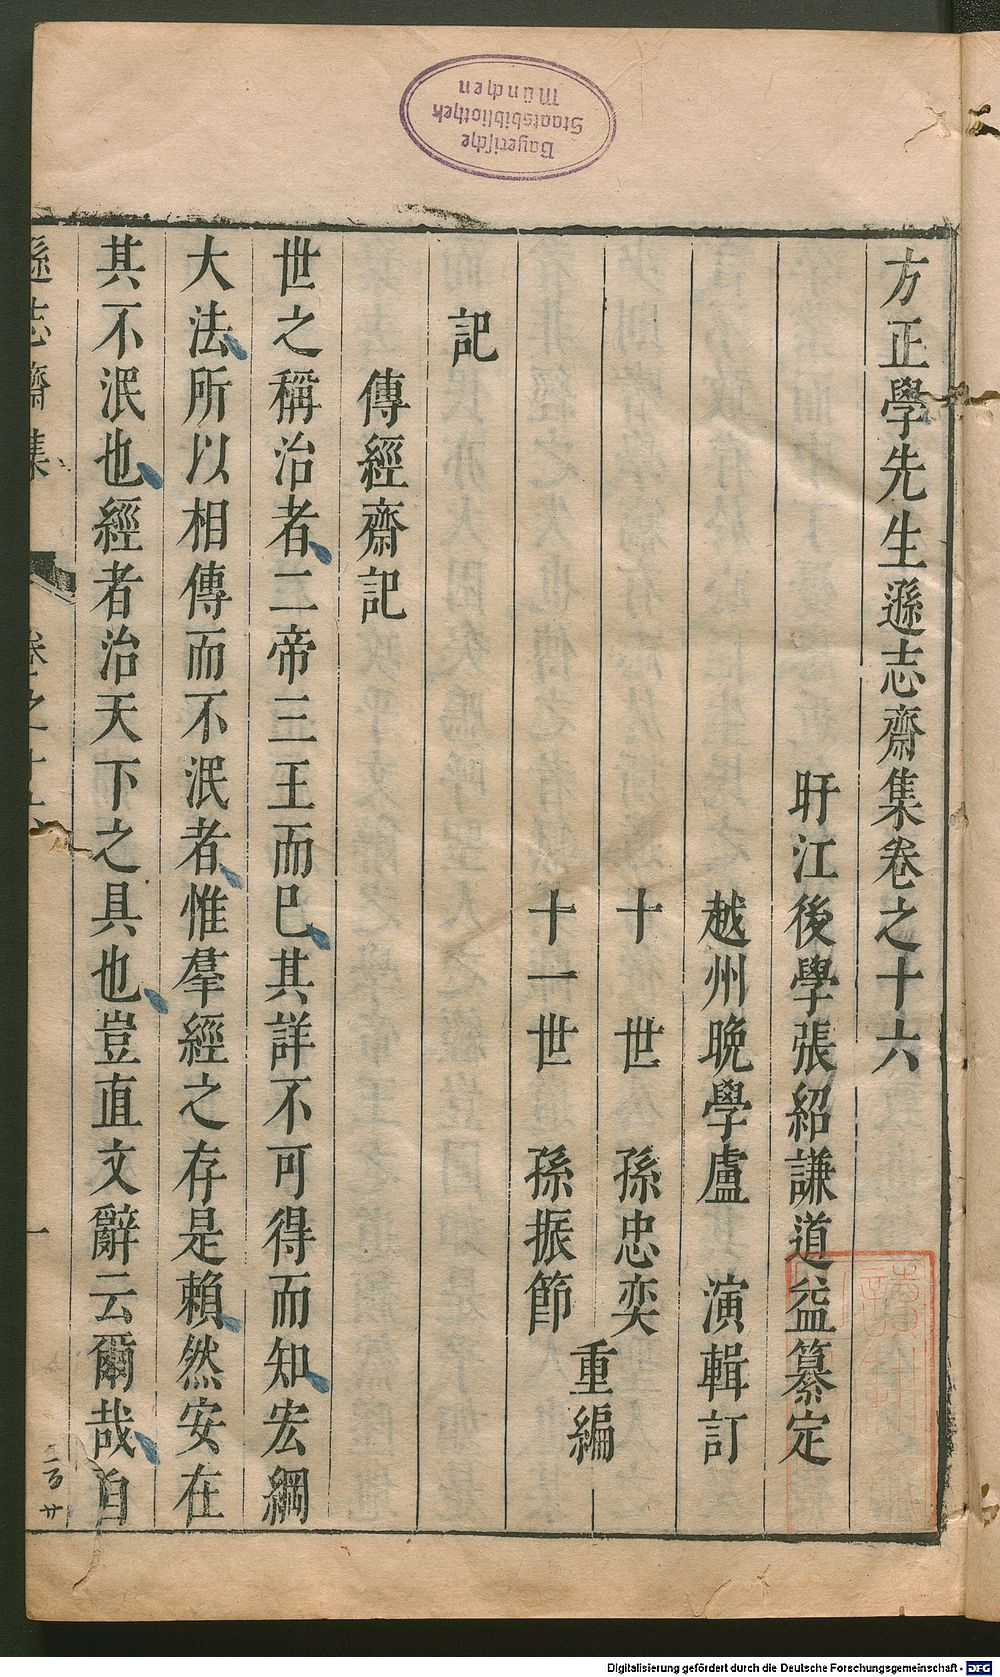 方正學先生遜志齋集卷之十六
盱江後學張紹謙道益纂定
越州晚學盧 演輯訂
十 世 孫忠奕
十一世 孫振節
重編
記
傳經齋記
世之稱治者二帝三王而已其詳不可得而知宏綱
大法所以相傳而不泯者惟羣經之存是賴然安在
其不泯也經者治天下之具也豈直文辭云爾哉自
遜志齋集 卷之十六 一
Bayerische
Staatsbibliothek
München
Digitalisierung gefördert durch die Deutsche Forschungsgemeinschaft - DFG